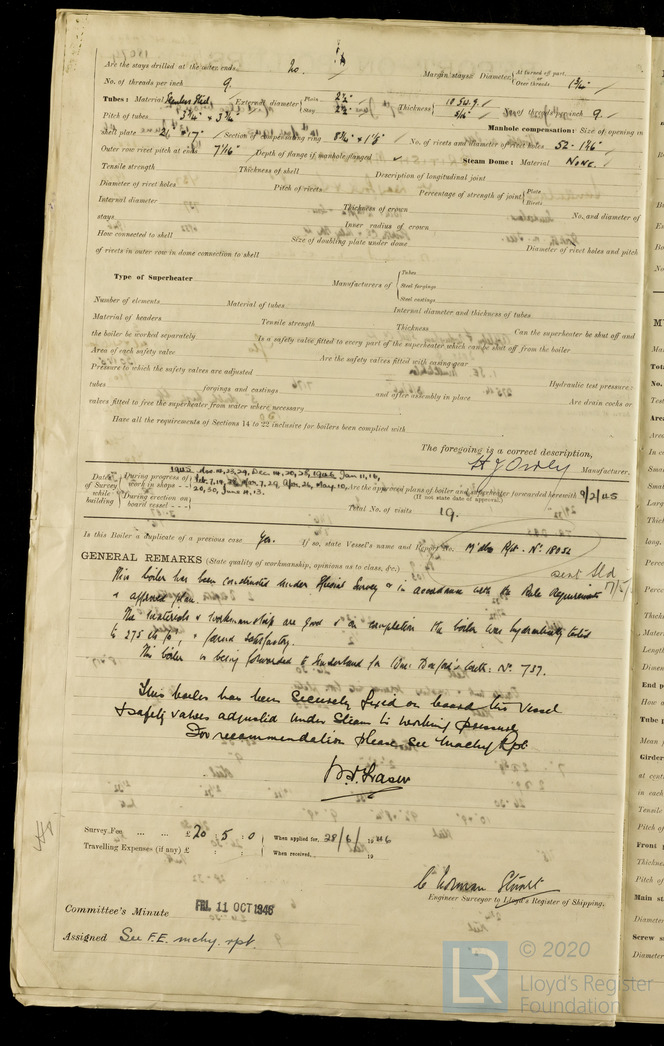 Are the stays drilled at the outer ends No. Margin stays: Diameter { At turned off part, or Over threads 1 3/4"
No. of threads per inch 9.
Tubes: Material Seamless Steel External diameter { Plain 2 1/2" Stay 2 1/2" Thickness { 10 S.W.G. 5/16" No. of threads per inch 9.
Pitch of tubes 3 3/4" x 3 3/4" Manhole compensation: Size of opening in
shell plate Section of compensating ring No. of rivets and diameter of rivet holes 52 - 1 3/16"
Outer row rivet pitch at ends 7 7/16" Depth of flange if manhole flanged Steam Dome: Material None.
Tensile strength Thickness of shell Description of longitudinal joint
Diameter of rivet holes Pitch of rivets Percentage of strength of joint { Plate Rivets
Internal diameter Thickness of crown No. and diameter of
stays Inner radius of crown
How connected to shell Size of doubling plate under dome Diameter of rivet holes and pitch
of rivets in outer row in dome connection to shell
Type of Superheater Manufacturers of { Tubes Steel forgings Steel castings
Number of elements Material of tubes Internal diameter and thickness of tubes
Material of headers Tensile strength Thickness Can the superheater be shut off and
the boiler be worked separately Is a safety valve fitted to every part of the superheater which can be shut off from the boiler
Area of each safety valve Are the safety valves fitted with easing gear
Pressure to which the safety valves are adjusted Hydraulic test pressure:
tubes forgings and castings and after assembly in place Are drain cocks or
valves fitted to free the superheater from water where necessary
Have all the requirements of Sections 14 to 22 inclusive for boilers been complied with
The foregoing is a correct description,
Manufacturer.
Dates of Survey while building { During progress of work in shops - - 1945 Nov. 14, 23, 29, Dec. 14, 20, 28, 1946 Jan. 11, 16,
Feb. 7, 14, 28, Mar. 7, 29, Apr. 26, May. 10, Are the approved plans of boiler and superheater forwarded herewith 9/2/45
(If not state date of approval.)
During erection on board vessel - - - 20, 30, June 4, 13. Total No. of visits 19.
Is this Boiler a duplicate of a previous case Yes. If so, state Vessel's name and Report No. M'dbro Rpt. No. 18052
sent Sld
GENERAL REMARKS (State quality of workmanship, opinions as to class, &c.)
This boiler has been constructed under Special Survey & in accordance with the Rule Requirements
& approved plan.
The materials & workmanship are good & on completion the boiler was hydraulically tested
to 275 lb □", & found satisfactory.
This boiler is being forwarded to Sunderland for No. 737.
This boiler has been securely fixed on board this vessel
& safety valves adjusted under steam to working pressure
For recommendation please see Machy Rpt.
Survey Fee ... ... £ 20 : 5 : 0 When applied for, 28/6/1946
Travelling Expenses (if any) £ : : When received, 19
C. Norman Stuart
Engineer Surveyor to Lloyd's Register of Shipping.
Committee's Minute FRI. 11 OCT 1946
Assigned See F.E. mchy. rpt.
© 2020
LR Lloyd's Register
Foundation